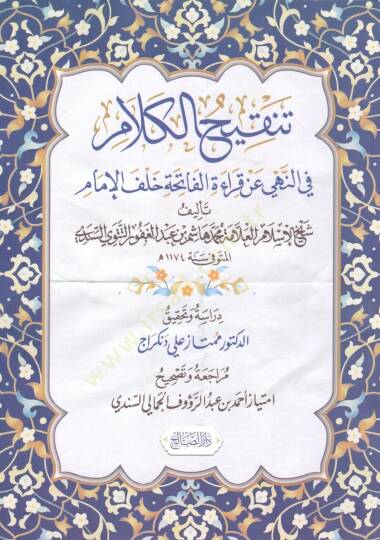 تنقيح الكلام
في النهي عن قراءة الفاتحة خلف الإمام
تأليف
شيخ الإسلام العلامة محمد هاشم بن عبد الغفور التتوي السندي
المتوفى سنة ١١٧٤ هـ
دراسة وتحقيق
الدكتور ممتاز علي دنكراج
مراجعة وتصحيح
امتياز أحمد بن عبد الرؤوف الجمالي السندي
دار الصالح